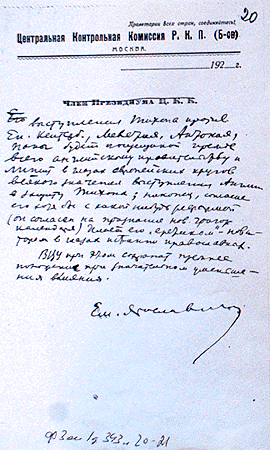 20
Пролетарии всех стран, соединяйтесь!
Центральная Контрольная Комиссия Р. К. П. (Б-ов)
МОСКВА.
192 г.
Член Президиума Ц. К. К.
выступления Тихона против
Еп. Кентерб., Мелетия, Антония,
будет пощечиной прежде
всего английскому правительству и
лишит в глазах европейских кругов
всякого значения выступления Англии
в защиту Тихона; наконец, согласие
его хотя бы с какой-нибудь реформой
(он согласен на признание нов. григор.
календаря) делает его „еретиком"-нова-
тором в глазах истинно православных.
ВЦУ при этом сохранит прежнее
положение при значительном уменьше-
нии влияния.
Ем. Ярославский
20-21